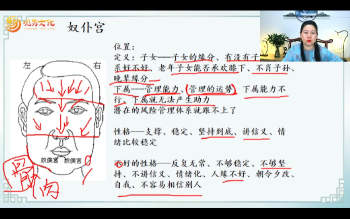 弘易文化
奴仆宫
左
右
奴僕宮
奴僕宮
位置：
定义：子女——子女的缘分、有没有子女、
系好不好、老年子女能否承欢膝下、不肖子孙、
晚辈缘分
下属——管理能力、管理的运势、下属能力不
行、下属就无法产生助力
潜在的风险管理体系就跟不上了
性格——支撑、稳定、坚持到底、讲信义、情
绪比较稳定
不好的性格——反复无常、不够稳定、不够坚
持、不讲信义、情绪化、人缘不好、朝令夕改、
自大、不容易相信别人